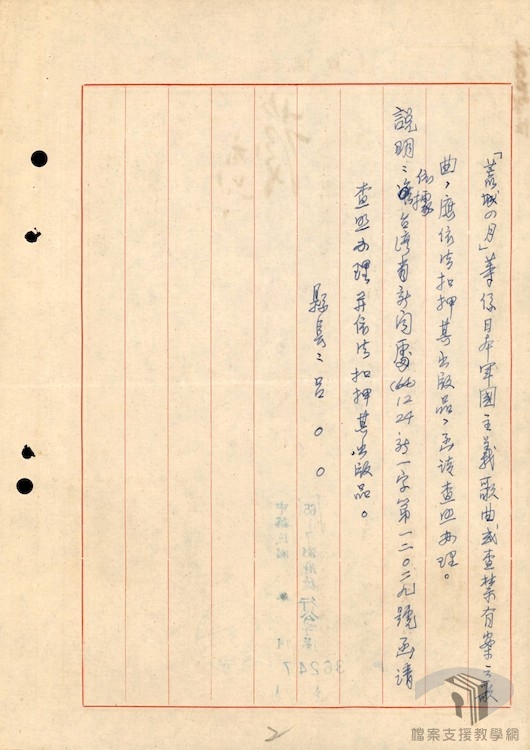 「荒城の月」等係日本軍國主義歌曲或查禁有案之歌
曲，應依法扣押其出版品，函請查照辦理。
說明：依據台灣省新聞處(64)12 24新一字第一二〇二九號函請
查照辦理并依法扣押其出版品。
縣長：呂〇〇
36247
2
檔案支援教學網